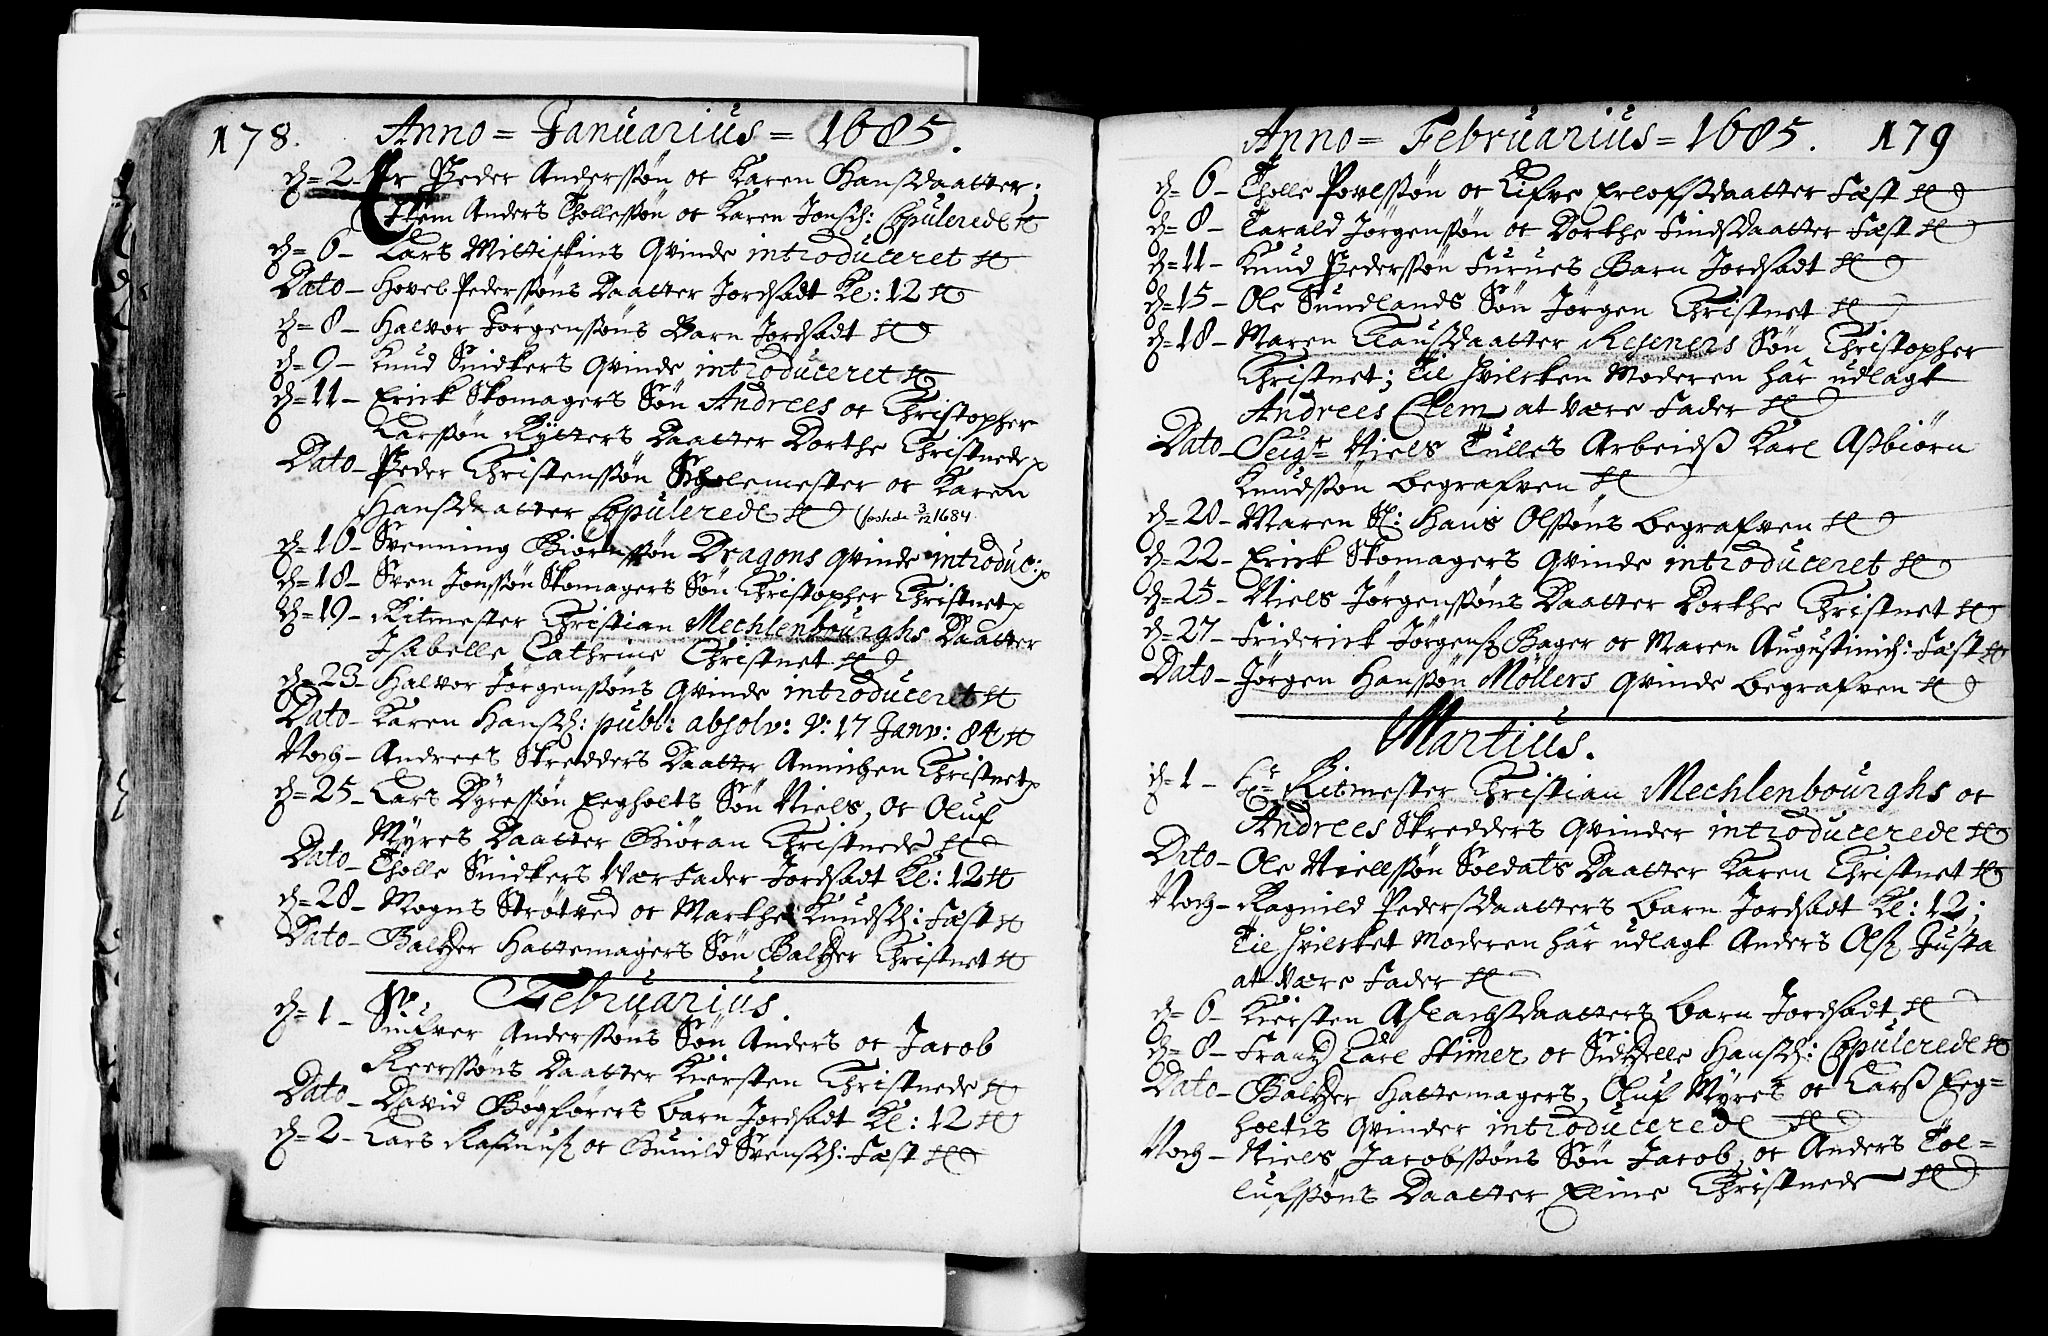 178. Anno = Januarius = 1685.
d= 2 - Er Peder Anderssøn oc Karen Hansdaatter;
Item Anders Thollessøn oc Karen Jonsd: Copulerede
d= 6 - Lars Mittiskins Qvinde introduceret
Dato - Hovel Pederssøns Daatter Jordsadt Kl: 12
d= 8 - Halvor Jørgenssøns Barn Jordsadt
d= 9 - Knud Snidkers Qvinde introduceret
d= 11 - Erick Skomagers Søn Andrees oc Christopher
Larssøn Rytters Daatter Dorthe Christnede
Dato - Peder Christenssøn Scholemester oc Karen
Hansdaatter Copulerede 3/12 1684.
d= 16 - Svenning Biørnssøn Dragons qvinde introduc:
d= 18 - Sven Jonssøn Skomagers Søn Christopher Christnet
d= 19 - Ritmester Christian Mechlenbourghs Daatter
Isabelle Cathrine Christnet
d= 23 - Halvor Jørgenssøns Qvinde introduceret
Dato - Karen Hansd: publ: absolv: V: 17 Janv: 84
Noch - Andrees Skredders Daatter Annichen Christnet
d= 25 - Lars Dyressøn Eegholts Søn Niels, oc Oluf
Myres Daatter Giøran Christnede
Dato - Tholle Snidkers Værfader Jordsadt Kl: 12
d= 28 - Mogns Strøtved oc Marthe Knudsd: Fæst
Dato - Baltzer Hattemagers Søn Baltzer Christnet
Februarius.
d= 1 - Siulver Anderssøns Søn Anders oc Jacob
Keerssøns Daatter Kiersten Christnede
Dato - David Bogførers barn Jordsadt Kl: 12
d= 2 - Lars Rasmuss oc Gunild Svensd: Fæst
Anno = Februarius = 1685. 179
d= 6 - Tholle Povlssøn oc Lifve Erlofsdaatter Fæst
d= 8 - Tarald Jørgenssøn oc Dorthe Findsdaatter Fæst
d= 11 - Knud Pederssøn Furues Barn Jordsadt
d= 15 - Ole Sundlands Søn Jørgen Christnet
d= 18 - Maren Clausdaatter Regeners Søn Christopher
Christnet; Til hvilcken Moderen har udlagt
Andrees Clem at være Fader
Dato - Seigr Niels Tulles Arbeidss Karl Assbiørn
Knudssøn begrafven
d= 20 - Maren Sl: Hans Olssøns begrafven
d= 22 - Erick Skomagers Qvinde introduceret
d= 25 - Niels Jørgenssøns Daatter Dorthe Christnet
d= 27 - Friderick Jørgenss Bager oc Maren Augustinid: Fæst
Dato - Jørgen Hanssøn Møllers Qvinde begrafven
Martius.
d= 1 - Hr Ritmester Christian Mechlenbourghs oc
Andrees Skredders Qvinder introducerede
Dito - Ole Niellssøn Soldats Daatter Karen Christnet
Noch - Ragnild Pedersdaatters barn Jordsadt Kl: 12;
Til hvilcket Moderen har udlagt Anders Olss Justa
at være Fader
d= 6 - Kiersten Aslachsdaatters Barn Jordsadt
d= 8 - Frantz Carl Skimer oc Sidtzelle Hansd: Copulerede
Dato - Baltzer Hattemagers, Oluf Myres oc Larss Eeg=
holtis Qvinder introducerede
Noch - Niels Jacobssøns Søn Jacob, oc Anders Tol=
lufssøns Daatter Eline Christnede